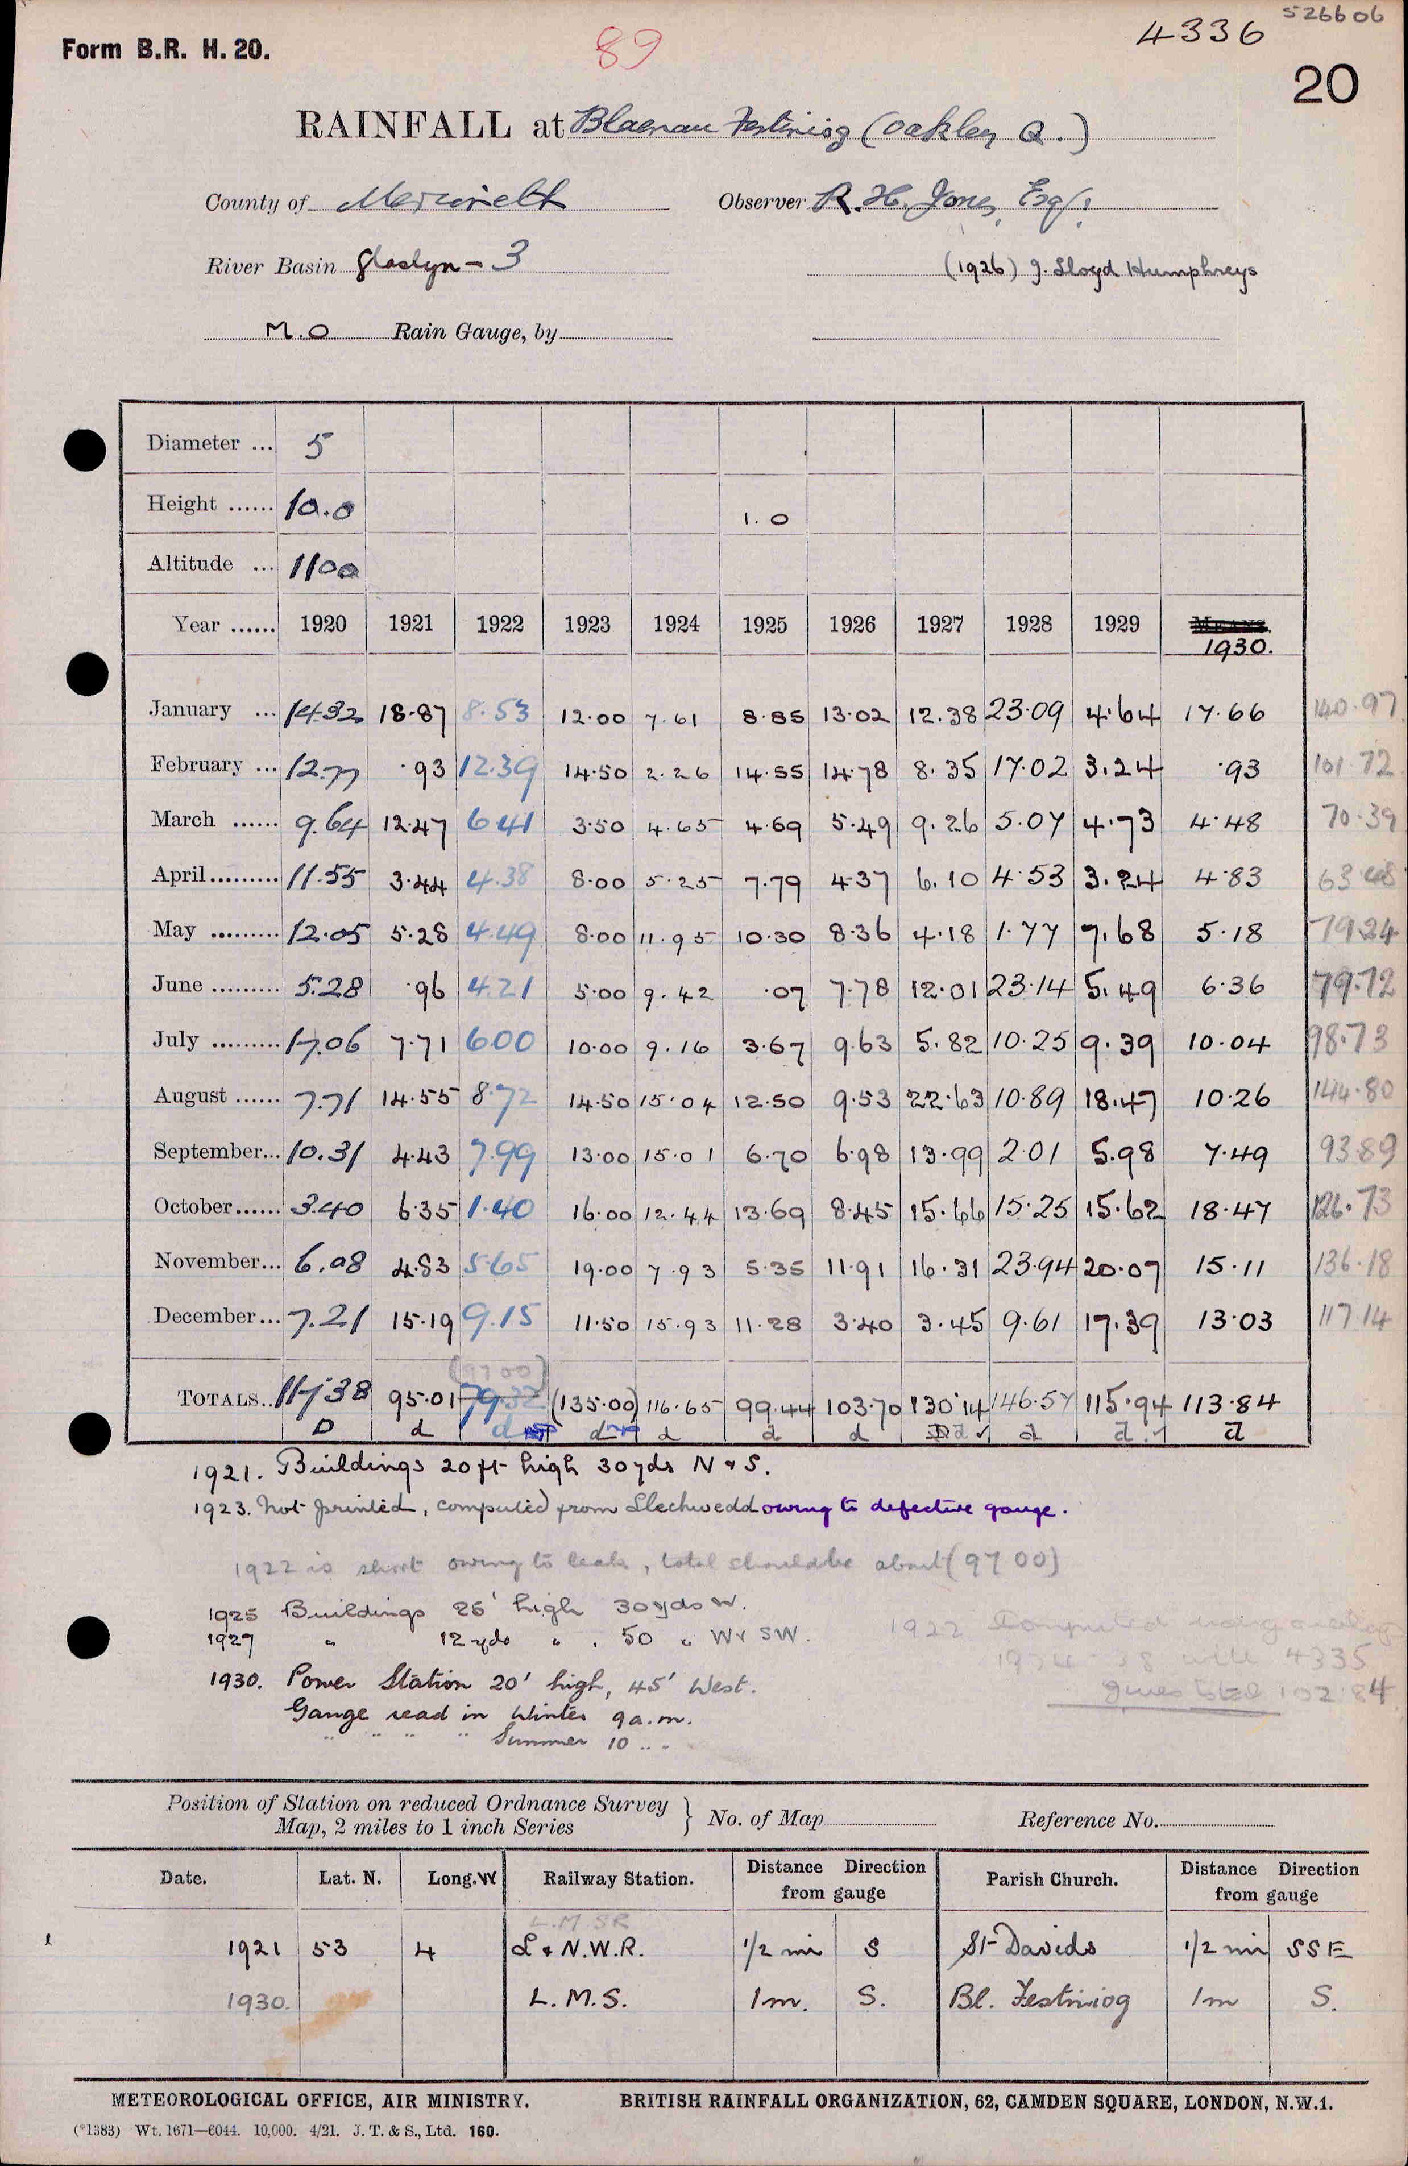 526606
4336
Form B.R. H. 20.
89
20
RAINFALL at Blaenau Festiniog (Oakley Q.)
County of Merioneth Observer R. H. Jones, Esq.
River Basin Glaslyn - 3 (1926) J. Lloyd Humphreys
M.O Rain Gauge, by
Diameter ... 5
Height ...... 10.0 1.0
Altitude ... 1100
Year ...... 1920 1921 1922 1923 1924 1925 1926 1927 1928 1929 MEANS. 1930.
January ... 14.32 18.87 8.53 12.00 7.61 8.85 13.02 12.38 23.09 4.64 17.66 140.97
February ... 12.77 .93 12.39 14.50 2.26 14.55 14.78 8.35 17.02 3.24 .93 101.72
March ...... 9.64 12.47 6.41 3.50 4.65 4.69 5.49 9.26 5.07 4.73 4.48 70.39
April......... 11.55 3.44 4.38 8.00 5.25 7.79 4.37 6.10 4.53 3.24 4.83 63.48
May ......... 12.05 5.28 4.49 8.00 11.95 10.30 8.36 4.18 1.77 7.68 5.18 79.24
June ......... 5.28 .96 4.21 5.00 9.42 .07 7.78 12.01 23.14 5.49 6.36 79.72
July ......... 17.06 7.71 6.00 10.00 9.16 3.67 9.63 5.82 10.25 9.39 10.04 98.73
August ...... 7.71 14.55 8.72 14.50 15.04 12.50 9.53 22.63 10.89 18.47 10.26 144.80
September... 10.31 4.43 7.99 13.00 15.01 6.70 6.98 13.99 2.01 5.98 7.49 93.89
October...... 3.40 6.35 1.40 16.00 12.44 13.69 8.45 15.66 15.25 15.62 18.47 126.73
November... 6.08 4.83 5.65 19.00 7.93 5.35 11.91 16.31 23.94 20.07 15.11 136.18
December... 7.21 15.19 9.15 11.50 15.93 11.28 3.40 3.45 9.61 17.39 13.03 117.14
(97 00)
TOTALS.. 117.38 95.01 79.32 (135.00) 116.65 99.44 103.70 130.14 146.57 115.94 113.84
D d d d d d d D d d d d
1921. Buildings 20 ft high 30 yds N & S.
1923. Not printed, computed from Llechwedd owing to defective gauge.
1922 is short owing to leak, total should be about (97 00)
1925 Buildings 26' high 30 yds W.
1927 " 12 yds " . 50 " W & SW.
1922 Computed using overlap
1924-28 with 4335
gives total 102.84
1930. Power Station 20' high, 45' West.
Gauge read in Winter 9 a.m.
" " " " Summer 10 " "
Position of Station on reduced Ordnance Survey Map, 2 miles to 1 inch Series } No. of Map Reference No.
Date. Lat. N. Long. W Railway Station. Distance Direction from gauge Parish Church. Distance Direction from gauge
L.M SR
1921 53 4 L & N.W.R. 1/2 mi S St Davids 1/2 mi SSE
1930. L. M. S. 1m. S. Bl. Festiniog 1m S.
METEOROLOGICAL OFFICE, AIR MINISTRY. BRITISH RAINFALL ORGANIZATION, 62, CAMDEN SQUARE, LONDON, N.W.1.
(*1383) Wt. 1671—6044. 10,000. 4/21. J. T. & S., Ltd. 160.